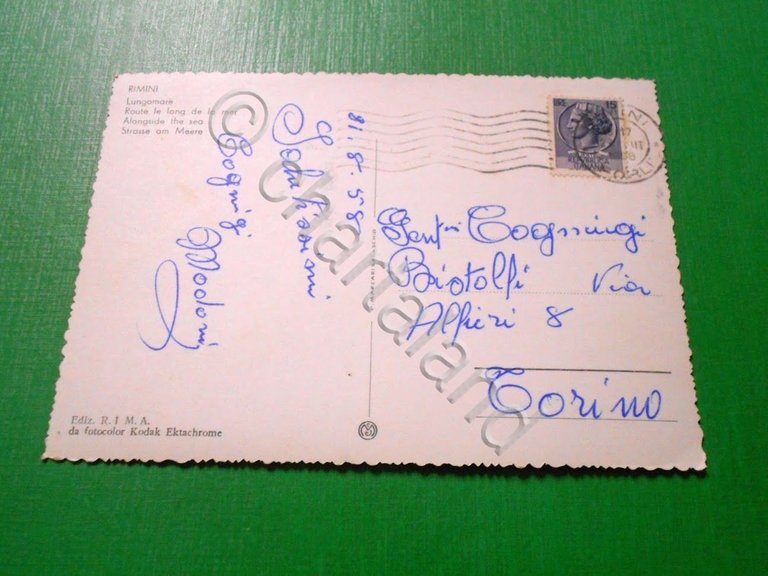 RIMINI
Lungomare
Route le long de la mer
Alongside the sea
Strasse am Meere
31.8.58
Salutissimi
Coogniugi
Modoni
LIRE 15
Gent.mi Coogniugi
Bistolfi Via
Alfieri 8
Torino
Ediz. R. I M. A.
da fotocolor Kodak Ektachrome
© chartaland